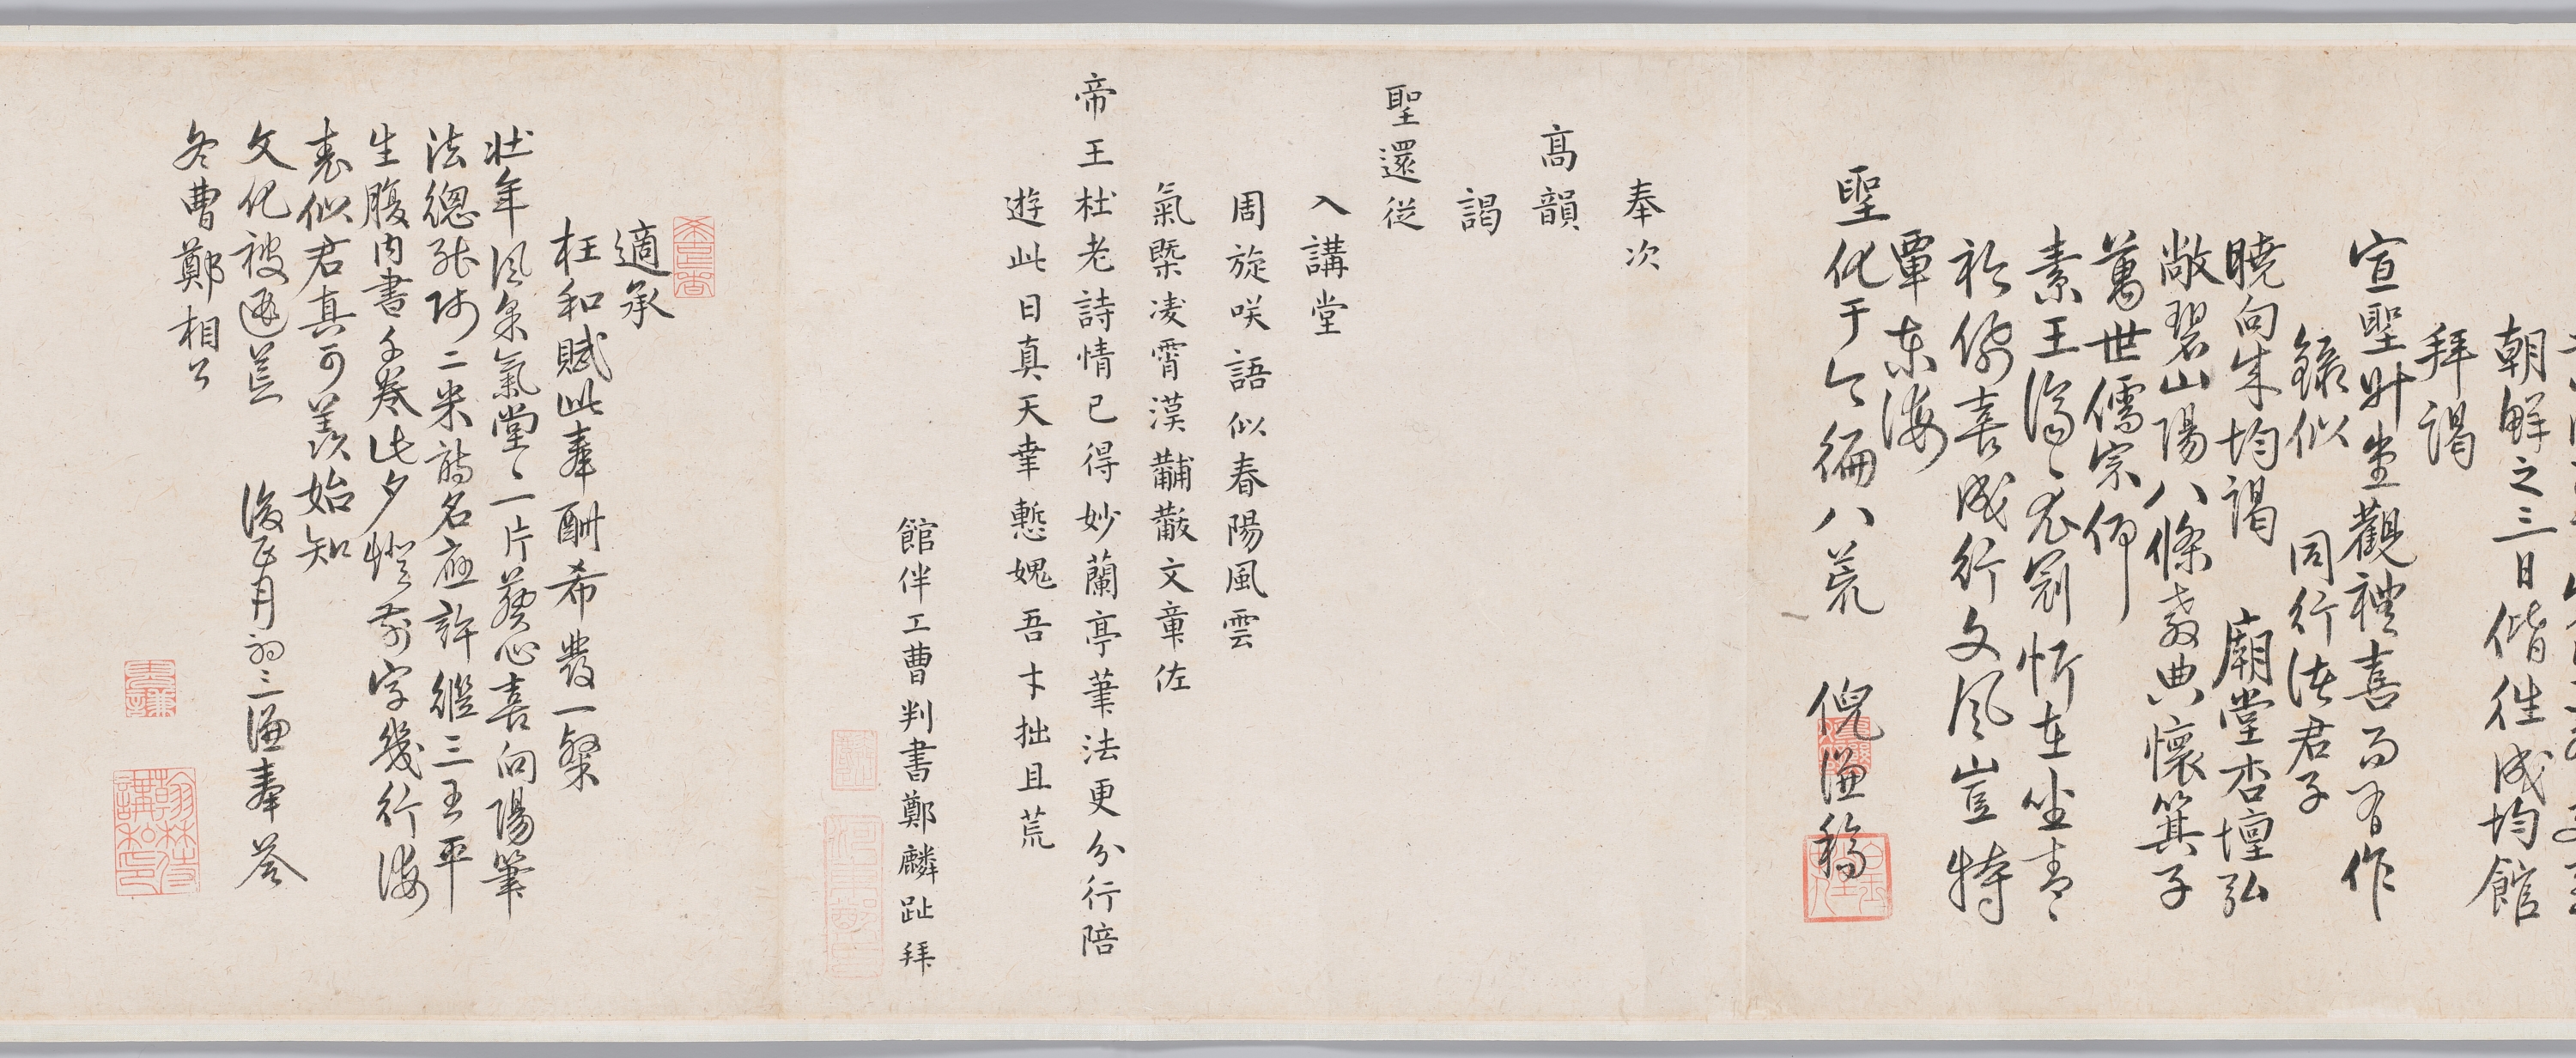 朝鮮之三日偕往成均館
拜謁
宣聖升堂觀禮喜而有作
錄似 同行諸君子
曉向成均謁 廟堂杏壇弘
敞碧山陽八條教典懷箕子
萬世儒宗仰
素王濟〻衣冠忻在坐青〻
衿佩喜成行文風豈特
覃東海
聖化于今徧八荒 倪謙稿
奉次
高韻
謁
聖還從
入講堂
周旋咲語似春陽風雲
氣槩凌霄漢黼黻文章佐
帝王杜老詩情已得妙蘭亭筆法更分行陪
遊此日真天幸慙愧吾才拙且荒
館伴工曹判書鄭麟趾拜
適承
枉和賦此奉酬希發一粲
壯年風采氣堂〻一片葵心喜向陽筆
法總能師二米詩名應許繼三王平
生腹內書千卷此夕燈前字幾行海
表似君真可羡始知
文化被遐荒 後正月初三謙奉答
冬曹鄭相公